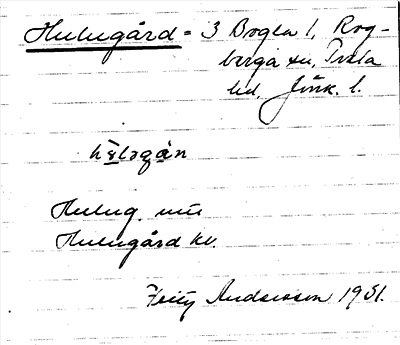 Hulugård = 3 Bogla 1, Rog-
berga sn, Tveta
hd, Jönk. l.
Hulug.
Hulugård kv.
Fritz Andersson 1951.